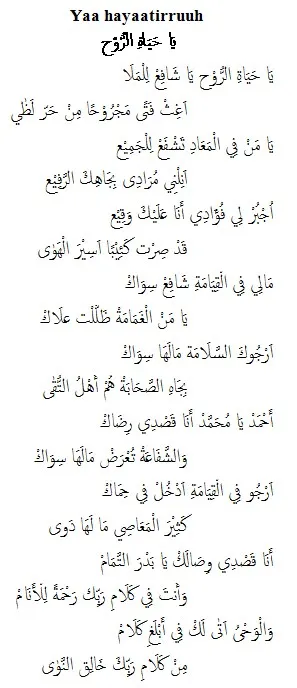 Yaa hayaatirruuh
يَا حَيَاةِ الرُّوْحِ
يَا حَيَاةِ الرُّوْحِ يَا شَافِعْ لِلْمَلَا
اَغِثْ فَتًى مَجْرُوْحًا مِنْ حَرِّ لَظٰى
يَا مَنْ فِي الْمَعَادِ تَشْفَعْ لِلْجَمِيْعِ
اَنِلْنِي مُرَادِى بِجَاهِكَ الرَّفِيْعِ
اُجْبُرْ لِي فُؤَادِي أَنَا عَلَيْكَ وَقِيْعِ
قَدْ صِرْت كَئِيْبًا اَسِيْرَ الْهَوٰى
مَالِي فِي الْقِيَامَةِ شَافِعْ سِوَاكْ
يَا مَنْ الْغَمَامَةْ ظَلَّلَت علَاكْ
اَرْجُوكَ السَّلَامَةَ مَالَهَا سِوَاكْ
بِجَاهِ الصَّحَابَةْ هُمْ أَهْلُ التُّقٰى
أَحْمَدْ يَا مُحَمَّدْ أَنَا قَصْدِي رِضَاكْ
وَالشَّفَاعَةْ تُعْرَضْ مَالَهَا سِوَاكْ
اَرْجُو فِي الْقِيَامَةِ اَدْخُلْ فِي حِمَاكْ
كَثِيْرَ الْمَعَاصِي مَا لَهَا دَوٰى
أَنَا قَصْدِي وِصَالَكْ يَا بَدْرَ التَّمَامْ
وَأنتَ فِي كَلَامِ رَبِّك رَحْمَةً لِلْأَنَامْ
وَالْوَحْىُ اَتٰى لَكْ فِي أَبْلَغِ كَلَامْ
مِنْ كَلَامِ رَبِّكَ خَالِقِ النَّوٰى